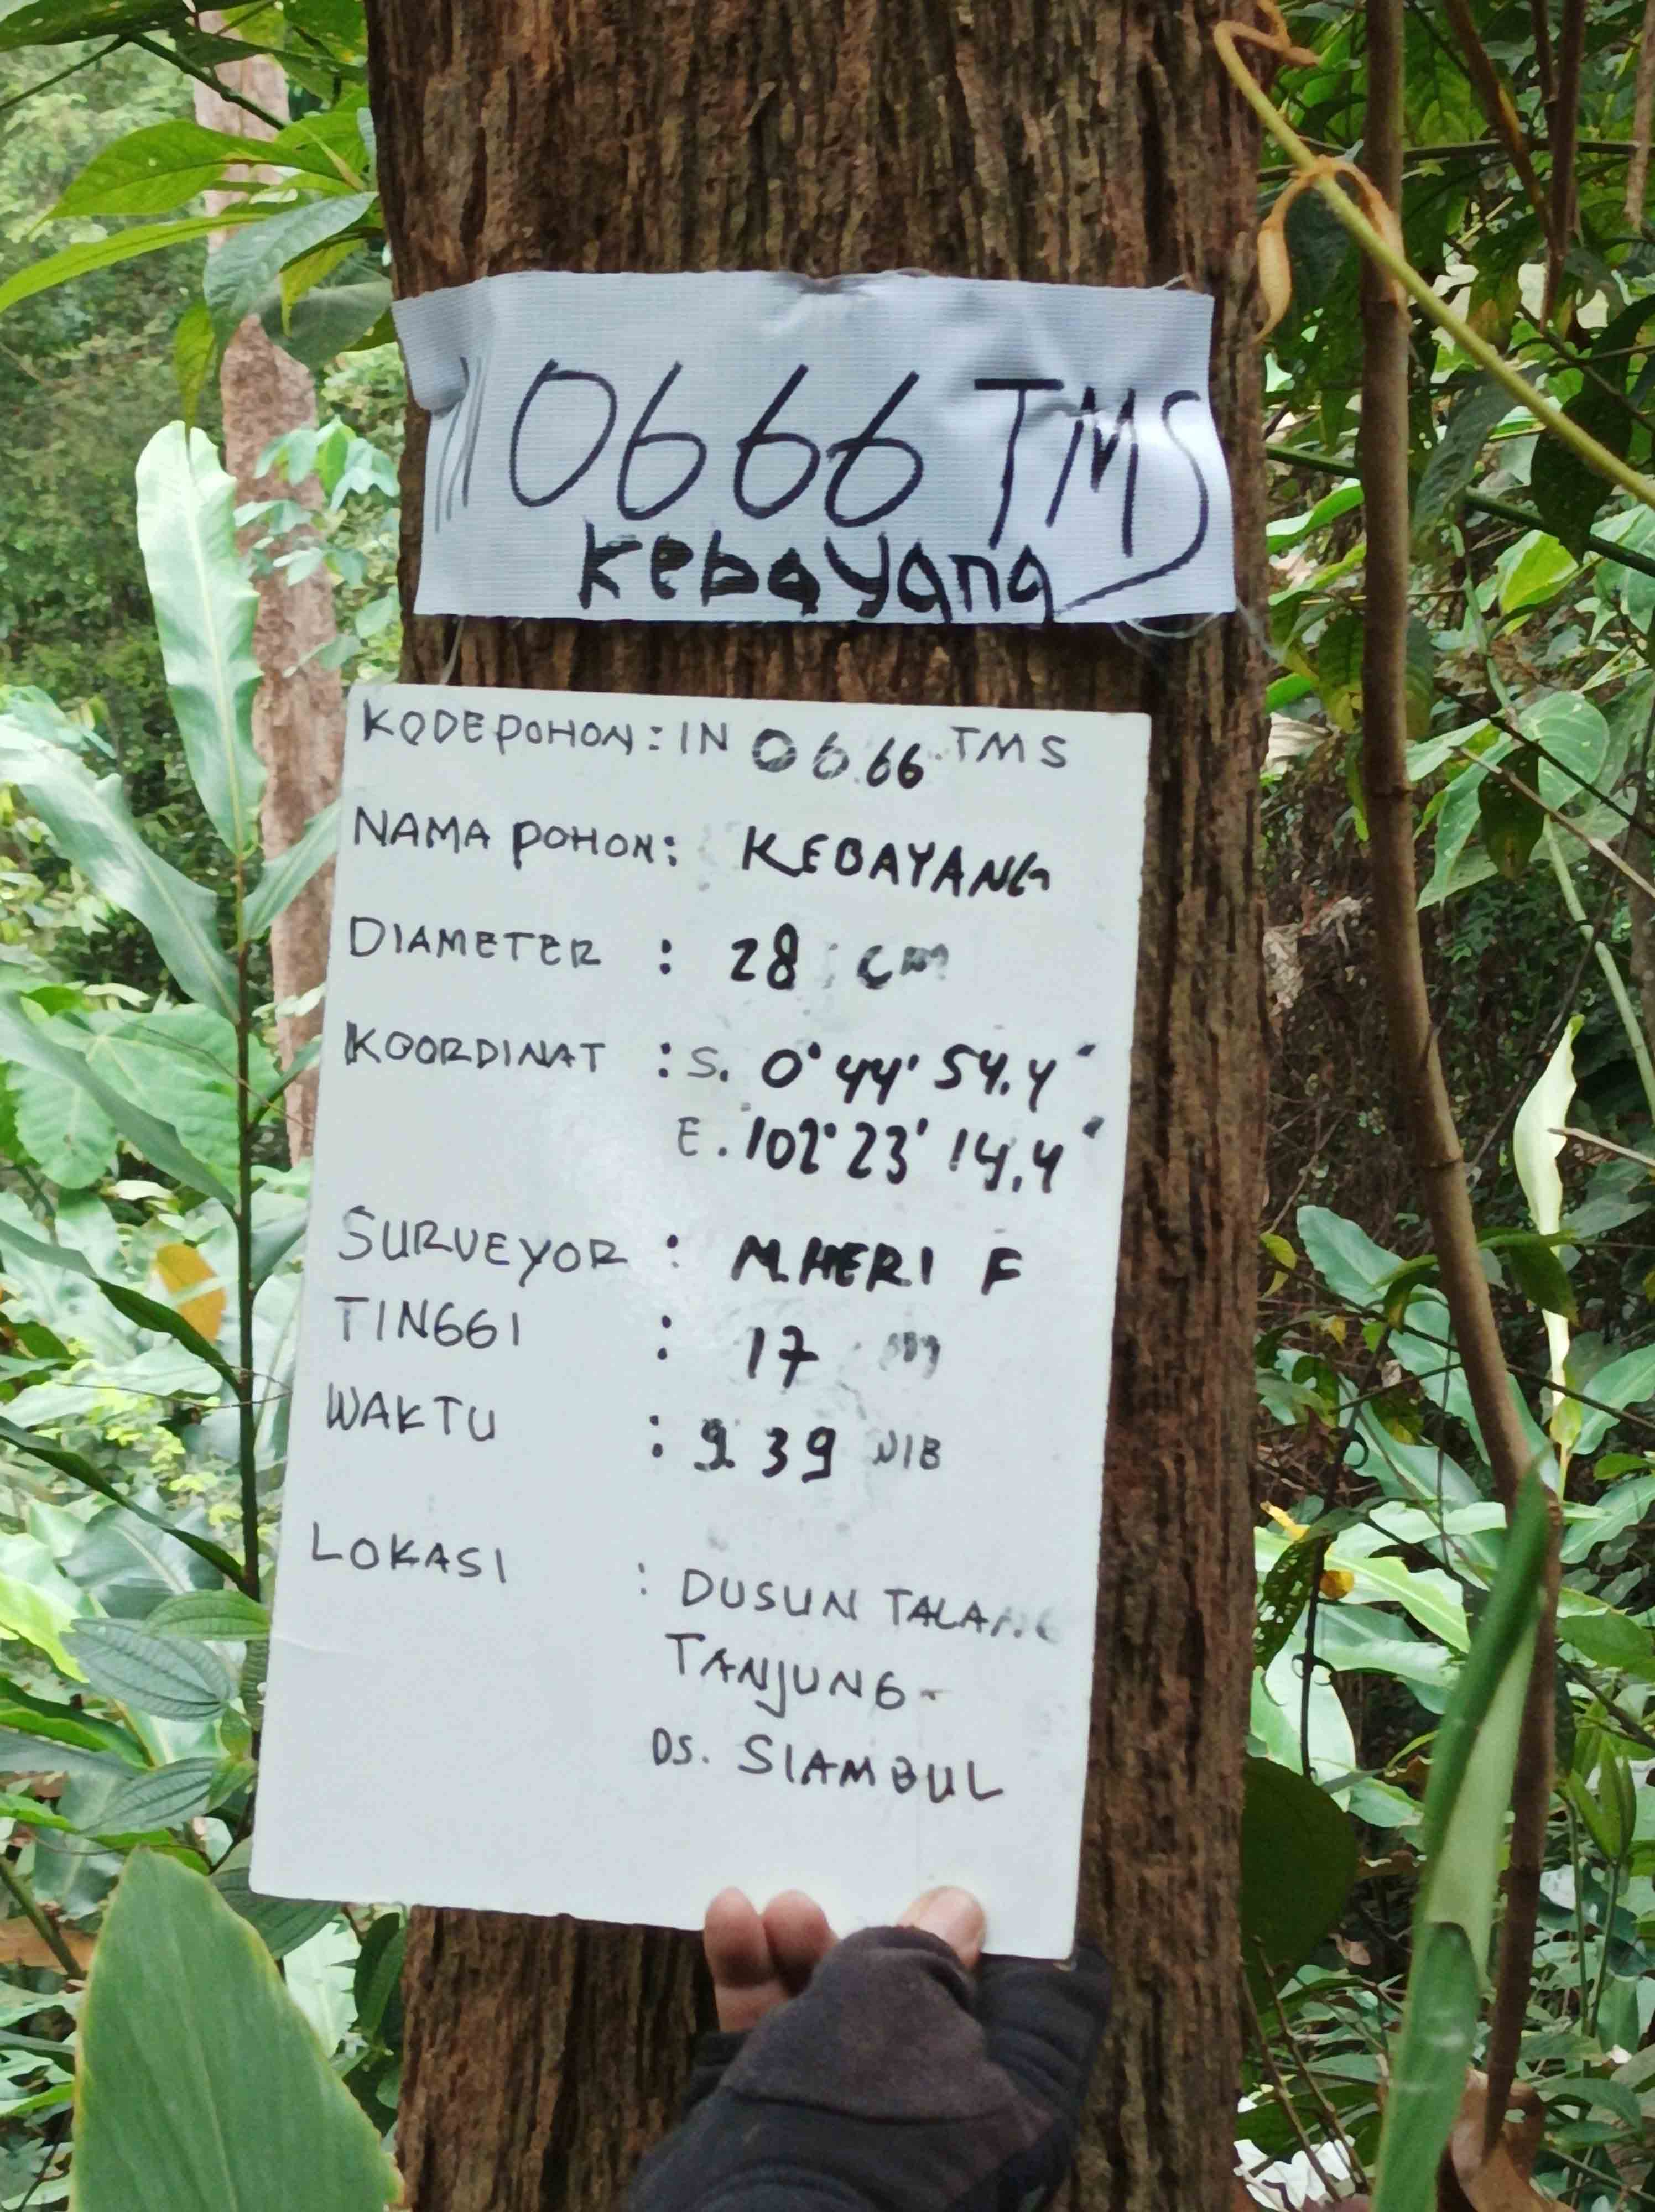 0666 TMS
kebayang
KODE POHON : IN 0666 TMS
NAMA POHON : KEBAYANG
DIAMETER : 28 cm
KOORDINAT : S. 0° 44' 54,4"
E. 102° 23' 14,4"
SURVEYOR : M.HERI F
TINGGI : 17 m
WAKTU : 9 39 WIB
LOKASI : DUSUN TALANG
TANJUNG -
DS. SIAMBUL